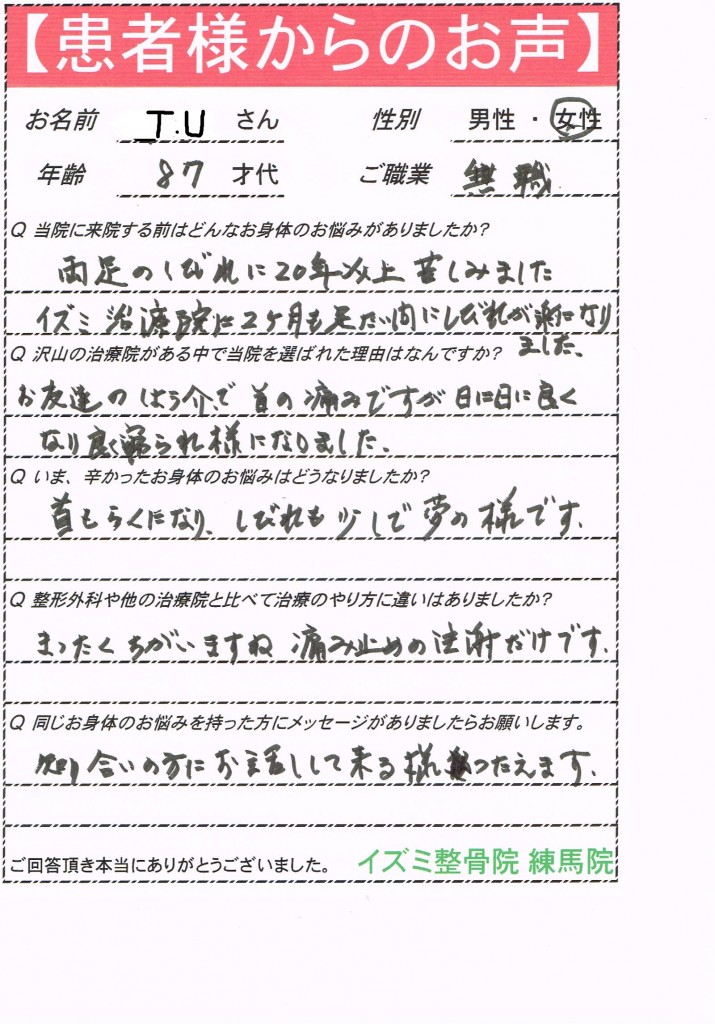 【患者様からのお声】
お名前 J.U さん 性別 男性・女性
年齢 87 才代 ご職業 無職
Q 当院に来院する前はどんなお身体のお悩みがありましたか?
両足のしびれに20年以上苦しみました
イズミ治療院に2ヶ月も足たず内にしびれが楽になり
ました、
Q 沢山の治療院がある中で当院を選ばれた理由はなんですか?
お友達のしょう介で首の痛みですが日に日に良く
なり良く寝られ様になりました、
Q いま、辛かったお身体のお悩みはどうなりましたか?
首もらくになり、しびれも少しで夢の様です.
Q 整形外科や他の治療院と比べて治療のやり方に違いはありましたか?
まったくちがいますね 痛み止めの注射だけです.
Q 同じお身体のお悩みを持った方にメッセージがありましたらお願いします。
知り合いの方にお話しして来る様つたえます.
ご回答頂き本当にありがとうございました。 イズミ整骨院 練馬院